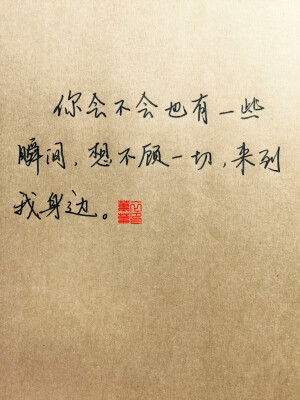 你会不会也有一些
瞬间，想不顾一切，来到
我身边。